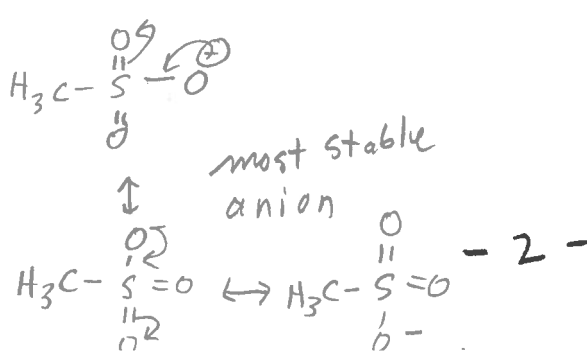 O
H3C - S - O
O
most stable
anion
O
O - 2 -
H3C - S = O ↔ H3C - S = O
O -